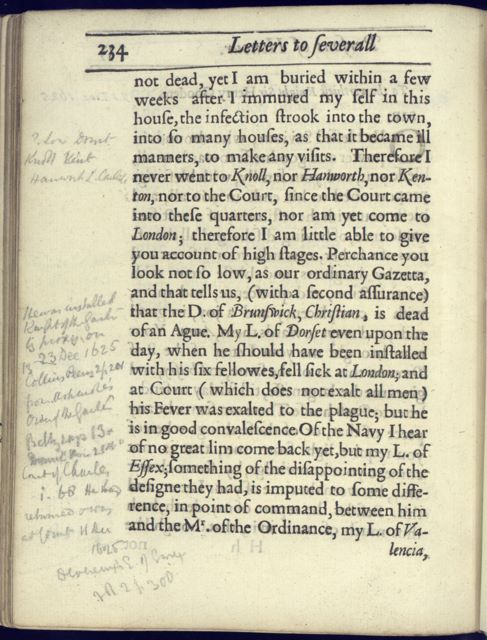 234
Letters to ſeverall
not dead, yet I am buried within a few
weeks after I immured my ſelf in this
houſe, the infection ſtrook into the town,
into ſo many houſes, as that it became ill
manners, to make any viſits. Therefore I
never went to Knoll, nor Hanworth, nor Ken-
ton, nor to the Court, ſince the Court came
into theſe quarters, nor am yet come to
London; therefore I am little able to give
you account of high ſtages. Perchance you
look not ſo low, as our ordinary Gazetta,
and that tells us, (with a ſecond aſſurance)
that the D. of Brunſwick, Chriſtian, is dead
of an Ague. My L. of Dorſet even upon the
day, when he ſhould have been inſtalled
with his ſix fellowes, fell ſick at London; and
at Court ( which does not exalt all men )
his Fever was exalted to the plague; but he
is in good convaleſcence. Of the Navy I hear
of no great lim come back yet, but my L. of
Eſſex; ſomething of the diſappointing of the
deſigne they had, is imputed to ſome diffe-
rence, in point of command, between him
and the Mr. of the Ordinance, my L. of Va-
lencia,
Knoll Kent
Hanworth L.
He was installed
Knight of the Garter
by proxy on
23 Dec 1625
Collins
Order of the Garter
Court of Charles
1. 68 He had
returned
at Court
1625
Devereux E. of Essex
300